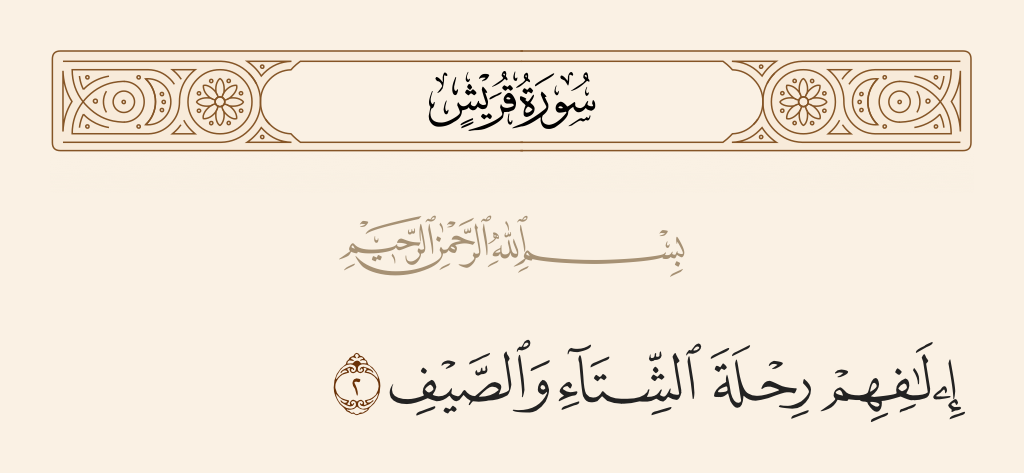 سُورَةُ قُرَيْشٍ
بِسْمِ ٱللَّهِ ٱلرَّحْمَٰنِ ٱلرَّحِيمِ
إِۦلَٰفِهِمْ رِحْلَةَ ٱلشِّتَآءِ وَٱلصَّيْفِ ٢